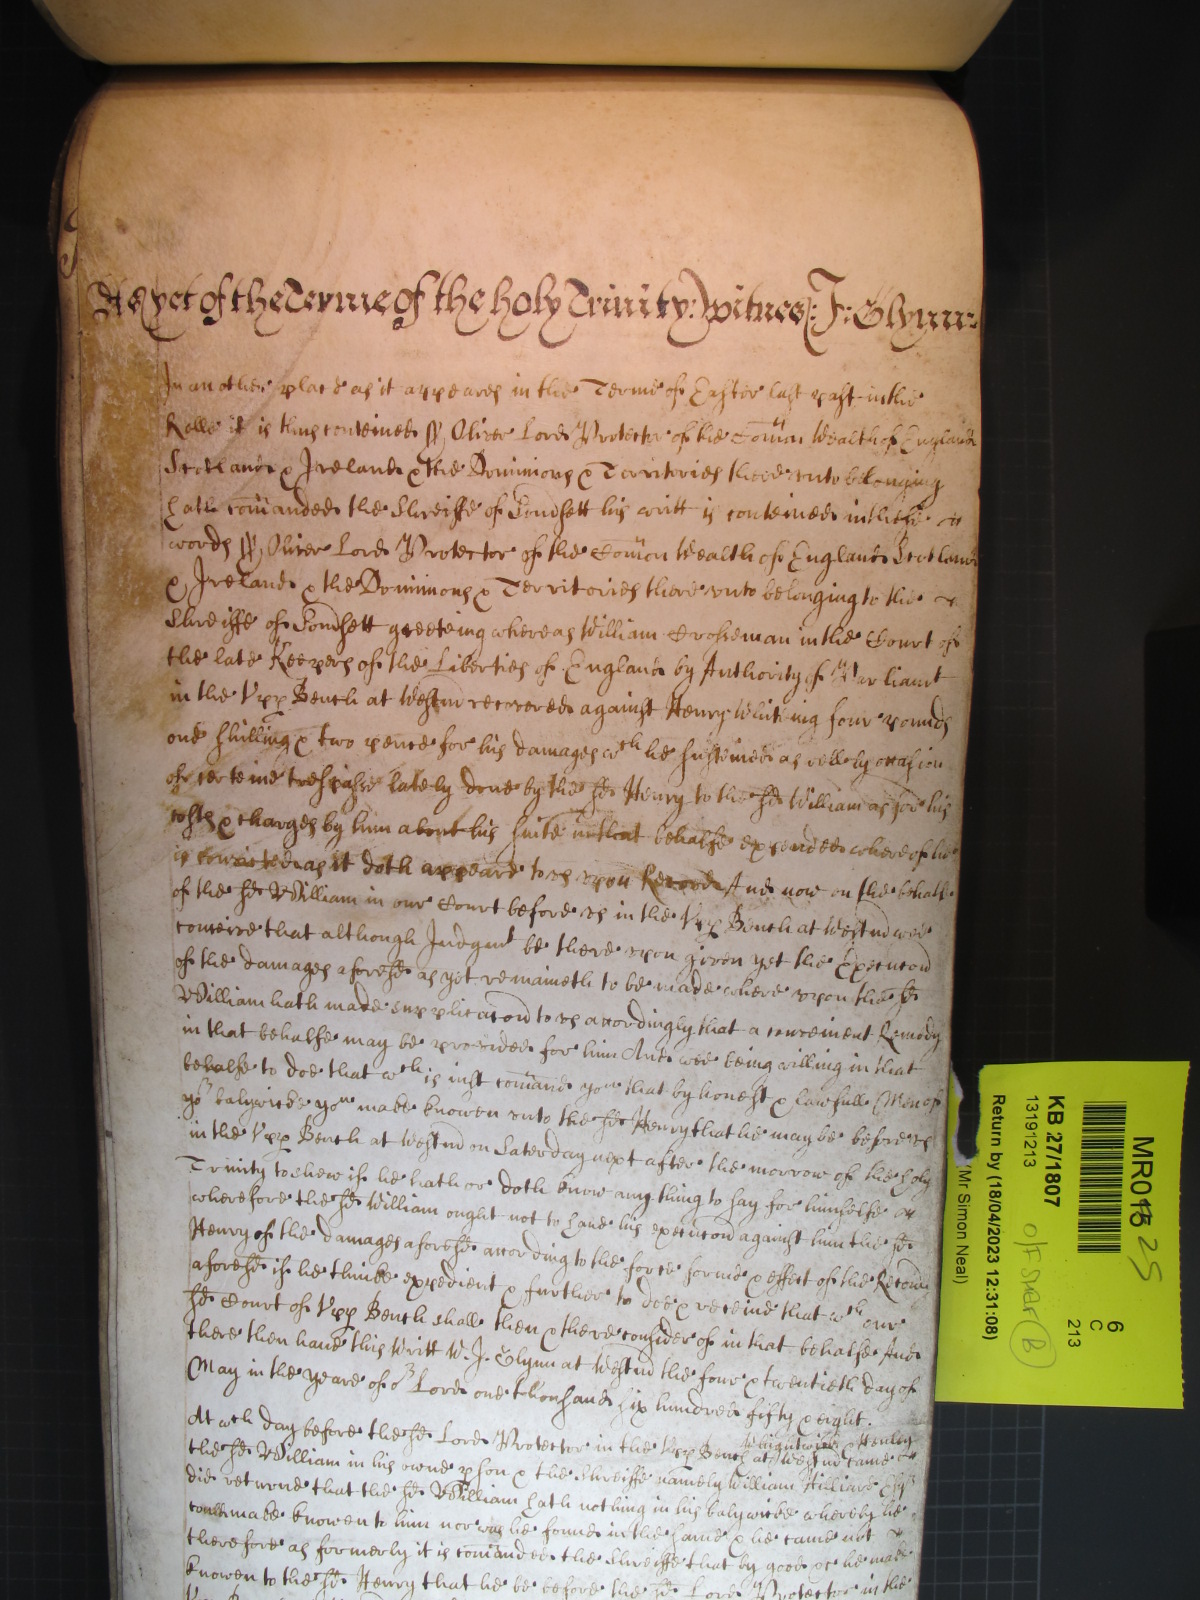 As yet of the Terme of the holy Trinity: Witnes: J: Glynn:
In another place as it appeares in the Terme of Easter last past in the
Rolle it is thus conteined ss Oliver Lord Protector of the Comon Wealth of England
Scotland & Ireland & the Dominions & Territories thereunto belonging
hath comanded the Shreiffe of Somsett his writt is conteined in these
words ss Oliver Lord Protector of the Comon Wealth of England Scotland
& Ireland & the Dominions & Territories thereunto belonging to the
Shreiffe of Somsett greeteing whereas William Crosseman in the Court of
the late Keepers of the Liberties of England by Authority of Parliamt
in the Upp Bench at Westm recovered against Henry Whiteing four pounds
one shilling & two pence for his damages wch he susteined as well by occasion
of certeine trespasse lately done by the sd Henry to the sd William as for his
costs & charges by him about his suite in that behalfe expended whereof he
is convicted as it doth appeare to us upon Record And now on the behalfe
of the sd William in our Court before us in the Upp Bench at Westm wee
conceive that although Judgmt be thereupon given yet the Execucon
of the damages aforesd as yet remaineth to be made whereupon the sd
William hath made supplicacon to us accordingly that a convenient Remedy
in that behalfe may be provided for him And wee being willing in that
behalfe to doe that wch is just comand you that by honest & lawfull Men of
yor balywicke you make knowen unto the sd Henry that he may be before us
in the Upp Bench at Westm on Saterday next after the morrow of the holy
Trinity to shew if he hath or doth know any thing to say for himselfe
wherefore the sd William ought not to have his execucon against him the sd
Henry of the damages aforesd according to the force forme & effect of the Record
aforesd if he thinke expedient & further to doe & receive that wch our
sd Court of Upp Bench shall then & there consider of in that behalfe And
there then have this Writt W. J. Glynn at Westm the four & twentieth day of
May in the yeare of or Lord one thousand six hundred fifty & eight.
At wch day before the sd Lord Protector in the Upp Bench at Westm came
the sd William in his owne pson & the Shreiffe namely William Hilliard Esqr
did retorne that the sd William hath nothing in his balywicke whereby he
could make knowen to him nor was he found in the same & he came not
therefore as formerly it is comanded the Shreiffe that by good &c he make
knowen to the sd Henry that he be before the sd Lord Protector in the
MR018 25
KB 27/1807
13191213
Return by (18/04/2023 12:31:08)
(Mr Simon Neal)
6
C
213
B